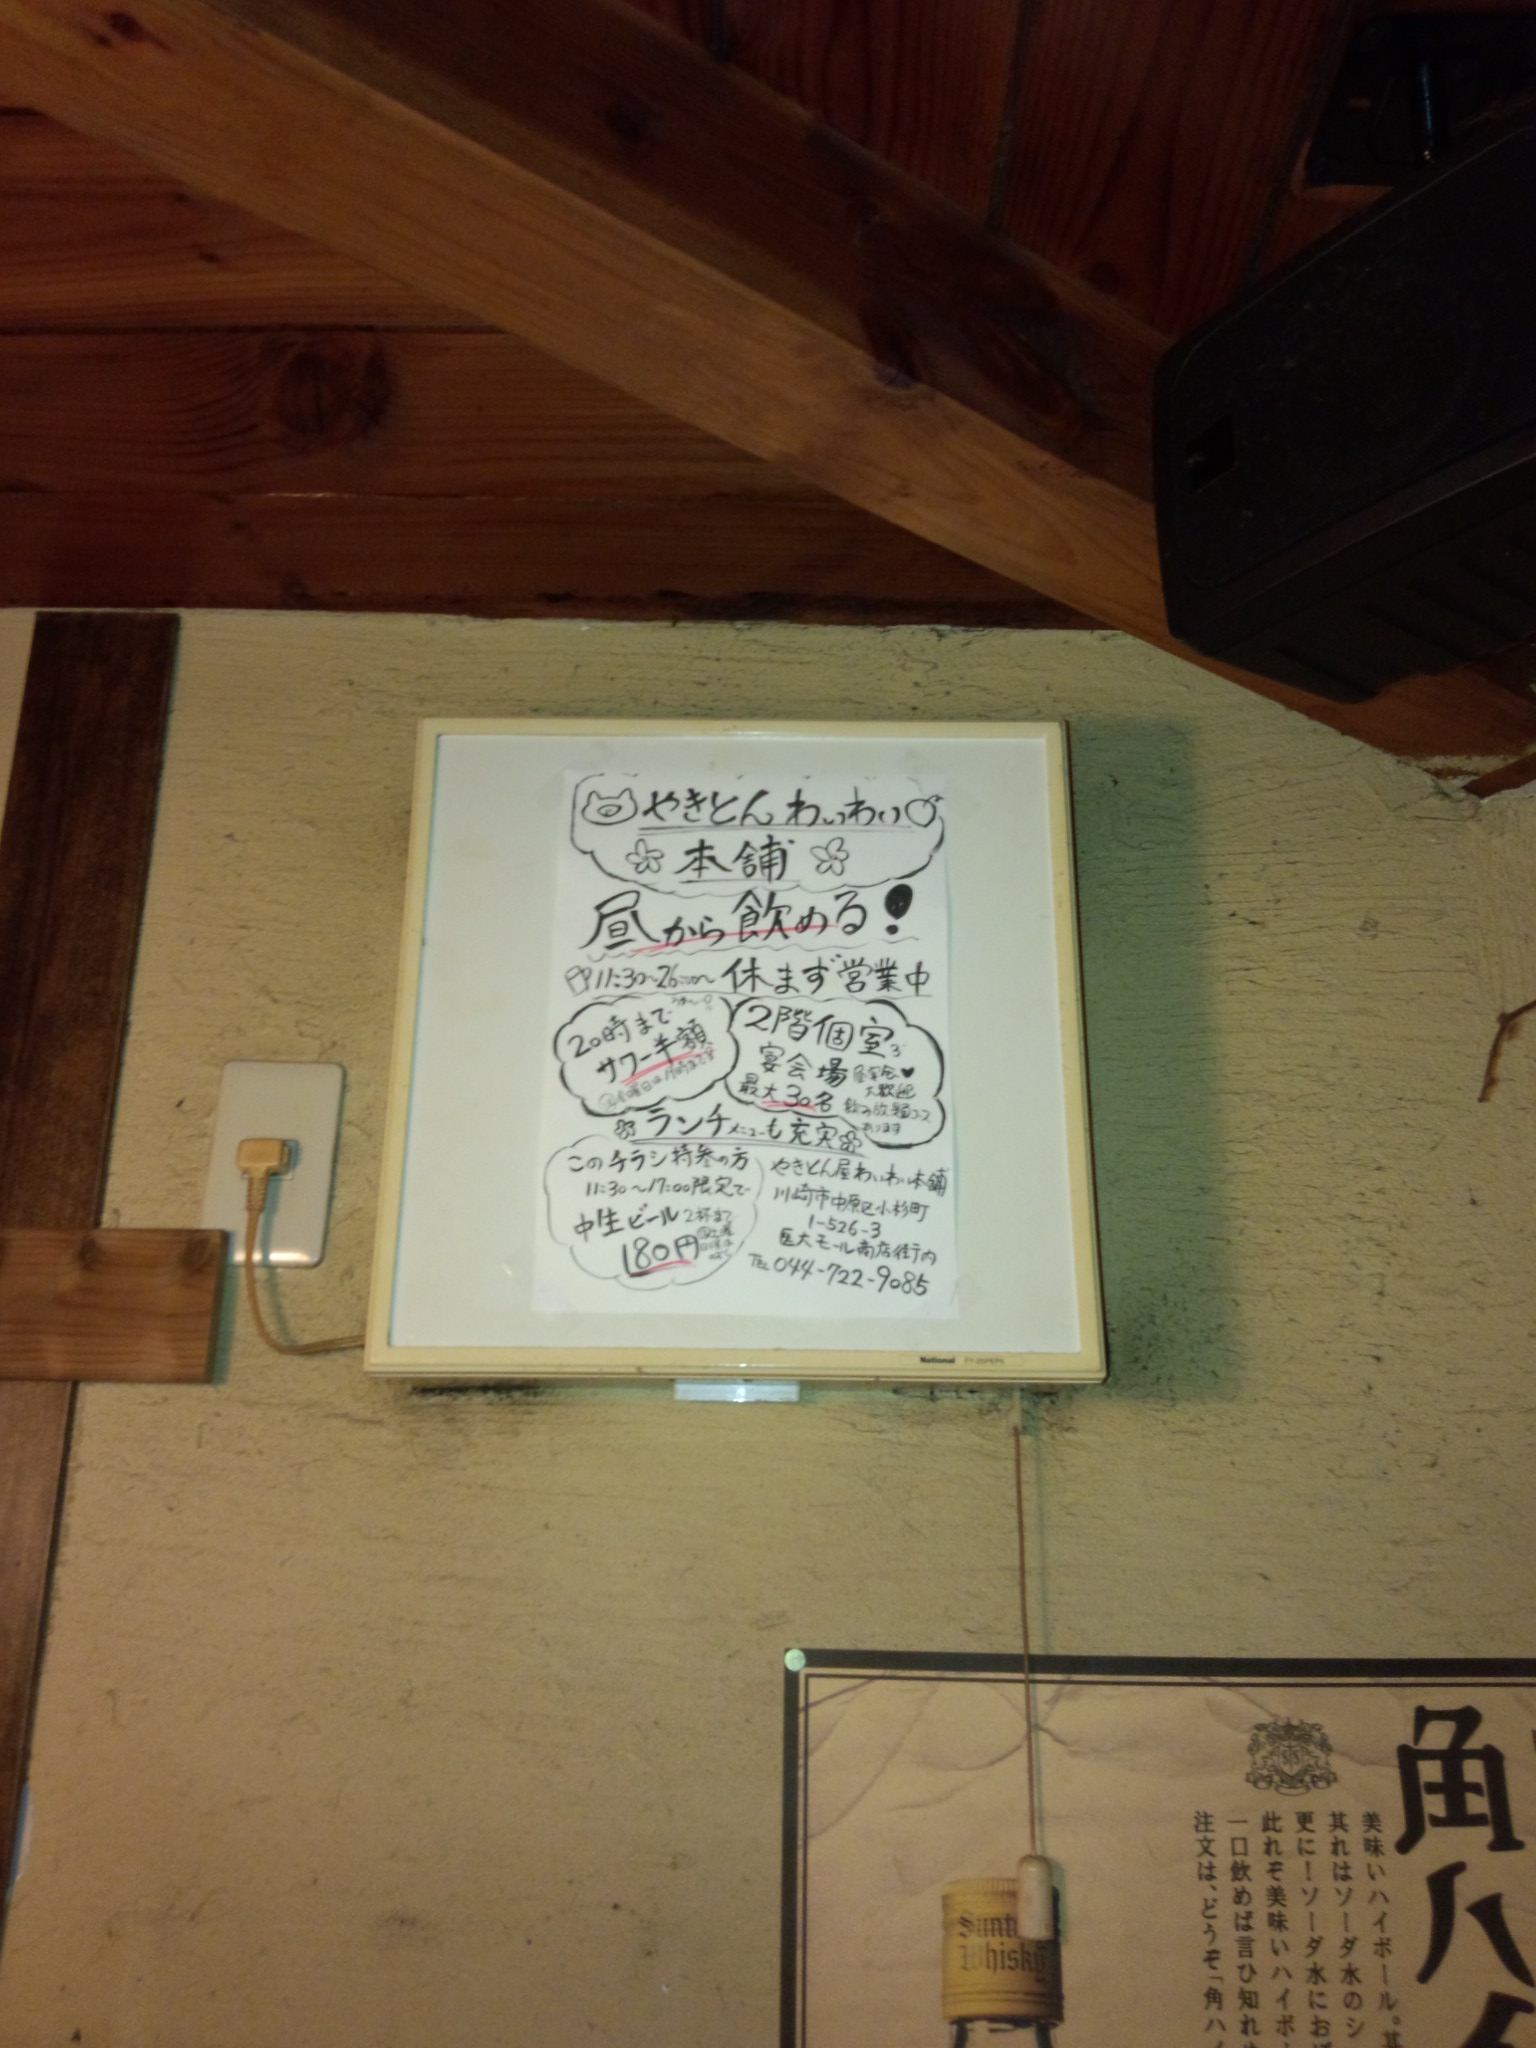 やきとんわいわい
本舗
昼から飲める!
11:30~26:00 休まず営業中
20時まで
サワー半額
2階個室
宴会場
最大30名
大歓迎
飲み放題コース
あります
ランチメニューも充実
このチラシ持参の方
11:30~17:00限定で
中生ビール2杯まで
180円
やきとん屋わいわい本舗
川崎市中原区小杉町
1-526-3
医大モール商店街内
TEL 044-722-9085
National
角ハイ
美味いハイボール。其
其れはソーダ水のシ
更に!ソーダ水におけ
此れぞ美味いハイボ
一口飲めば言ひ知れぬ
注文は、どうぞ「角ハイ
Suntory
Whisky